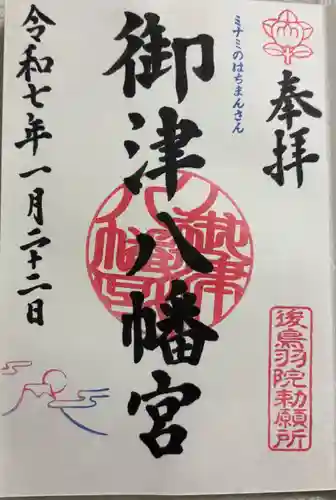 奉拝
後鳥羽院勅願所
ミナミのはちまんさん
御津八幡宮
令和七年一月二十二日